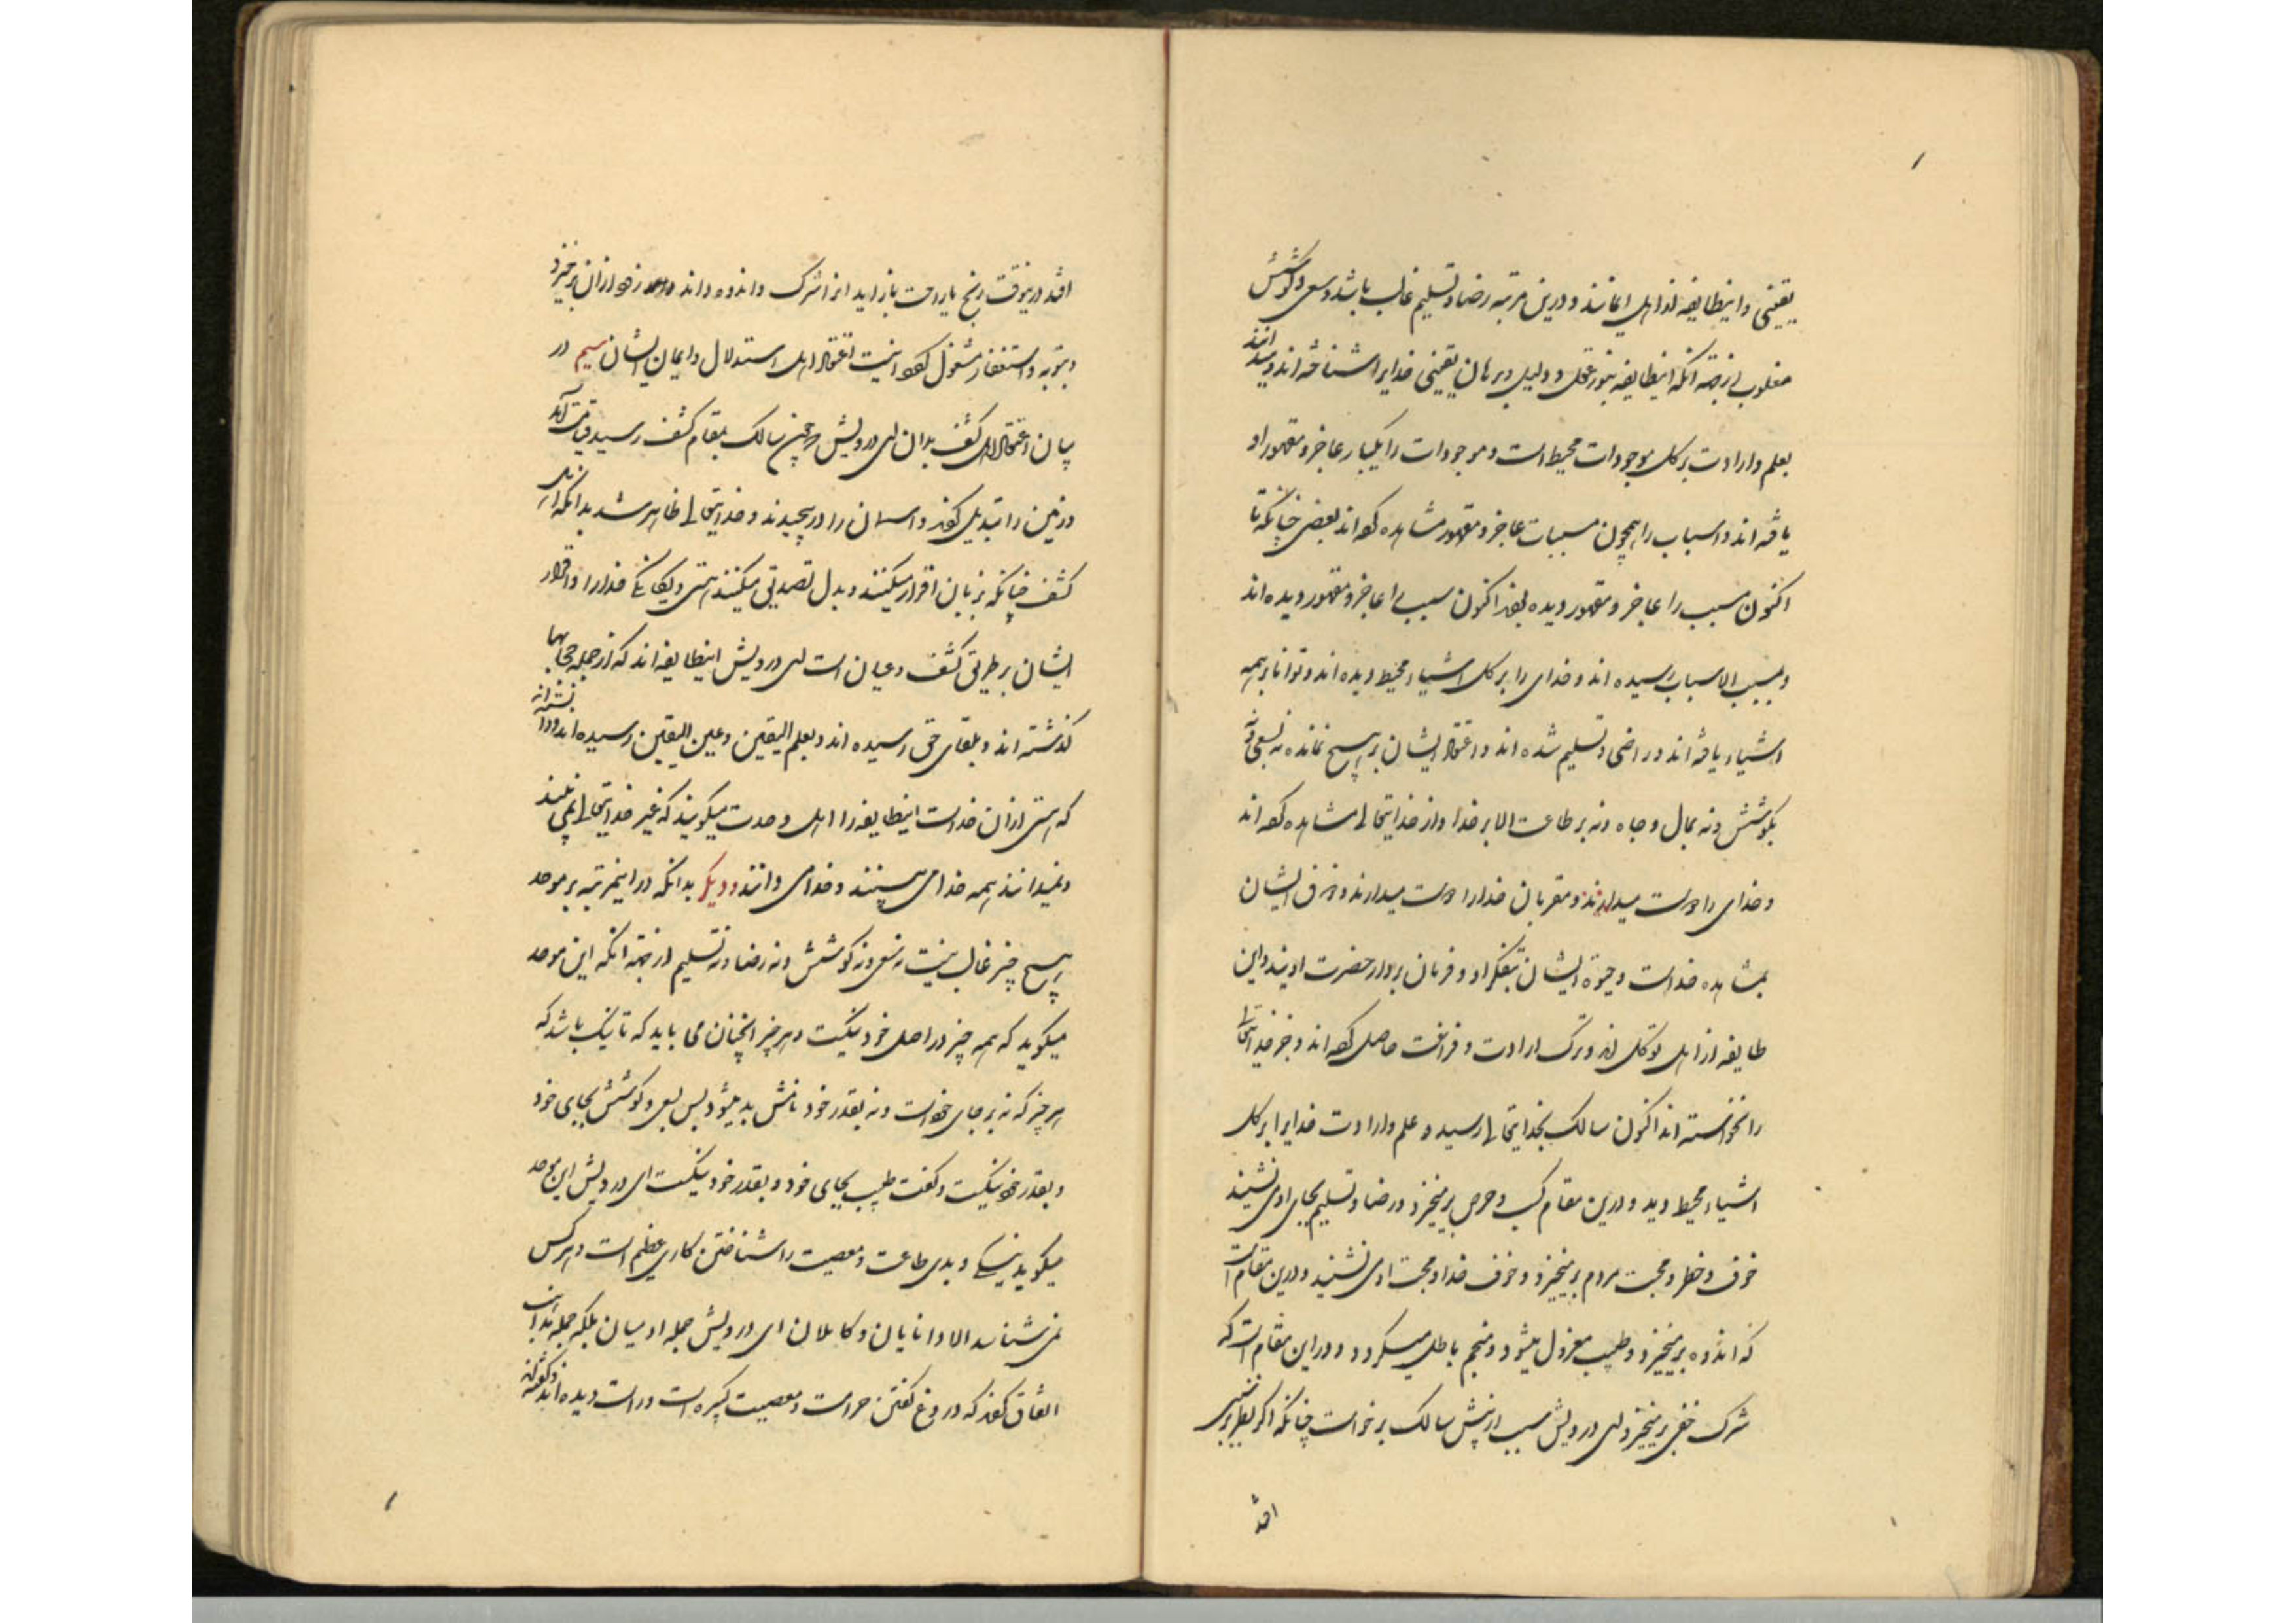 یقینی و اینطایفه از اهل ایمانند و درین مرتبه رضا و تسلیم غالب باشد و سعی و کوشش
مغلوب از جهته آنکه اینطایفه بنور عقل و دلیل و برهان یقینی خدایرا شناخته اند و میدانند
بعلم و ارادت بر کل موجودات محیط است و موجودات را یکبار عاجز و مقهور او
یافته اند و اسباب را همچون مسببات عاجز و مقهور مشاهده کرده اند بعضی چنانکه تا
اکنون مسبب را عاجز و مقهور دیده بودند اکنون سبب را عاجز و مقهور دیده اند
و بمسبب الاسباب رسیده اند و خدای را بر کل اشیاء محیط دیده اند و توانا بر همه
اشیاء یافته اند و راضی و تسلیم شده اند و اعتقاد ایشان بر هیچ نمانده نه بسعی نه
بکوشش و نه بمال و جاه و نه بر طاعت الا بر خدا و از خدایتعالی مشاهده کرده اند
و خدای را دوست میدارند و مقربان خدارا دوست میدارند و ذوق ایشان
بمشاهده خداست و حیوة ایشان بتفکر او و فرمان بردار حضرت اویند و این
طایفه از اهل توکل اند و ترک ارادت و فراغت حاصل کرده اند و جز خدایتعالی
را نخواسته اند اکنون سالک بخدایتعالی رسید و علم و ارادت خدایرا بر کل
اشیاء محیط دید و درین مقام کسب و حرص برمیخیزد و رضا و تسلیم بجای او می نشیند
خوف و خطر و محبت مردم برمیخیزد و خوف خدا و محبت او می نشیند و درین مقام است
که اندوه برمیخیزد و طبیب معزول میشود و منجم باطل میگردد و در این مقام است که
شرک خفی برمیخیزد ای درویش سبب از پیش سالک برخواست چنانکه اگر نظر بر سبب
افتد
افتد درینوقت رنج یا راحت باز آید انرا شرک داند و داند و زود ازان برخیزد
و بتوبه و استغفار مشغول گردد اینست اعتقاد اهل استدلال و ایمان ایشان سیم در
بیان اعتقاد اهل کشف بدان ای درویش که چون سالک بمقام کشف رسید قیامت آمد
و زمین را تبدیل کردند و اسمان را در پیچیدند و خدایتعالی ظاهر شد بدانکه اهل
کشف چنانکه بزبان اقرار میکنند و بدل تصدیق میکنند هستی و یکانکی خدارا و اقرار
ایشان بر طریق کشف و عیان است ای درویش اینطایفه اند که از جمله حجابها
گذشته اند و بلقای حق رسیده اند و بعلم الیقین و عین الیقین رسیده اند و دانسته اند
که هستی ازان خداست اینطایفه را اهل وحدت میگویند که غیر خدایتعالی نمی بینند
و نمیدانند همه خدا می بینند و خدا می دانند و دیگر بدانکه در اینمرتبه بر موحد
هیچ چیز غالب نیست نه سعی و نه کوشش و نه رضا و نه تسلیم از جهته انکه این موحد
میگوید که همه چیز در اصل خود نیکست و هر چیز انچنان می باید که تا نیک باشد که
هر چیز که نه بر جای خود است و نه بقدر خود نامش بد میشود پس سعی و کوشش بجای خود
و بقدر خود نیکست و گفت طبیب بجای خود و بقدر خود نیکست ای درویش این موحد
میگوید نیکی و بدی طاعت و معصیت را شناختن کاری عظیم است و هر کس
نمی شناسد الا دانایان و کاملان ای درویش جمله ادمیان بلکه جمله
اتفاق کردند که دروغ گفتن حرامست و معصیت کبیره است و راست